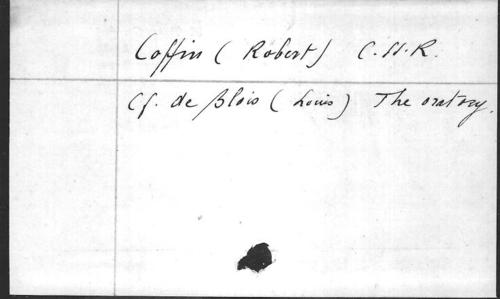 Coffin (Robert) C.SS.R.
Cf. de Blois (Louis) The oratory.